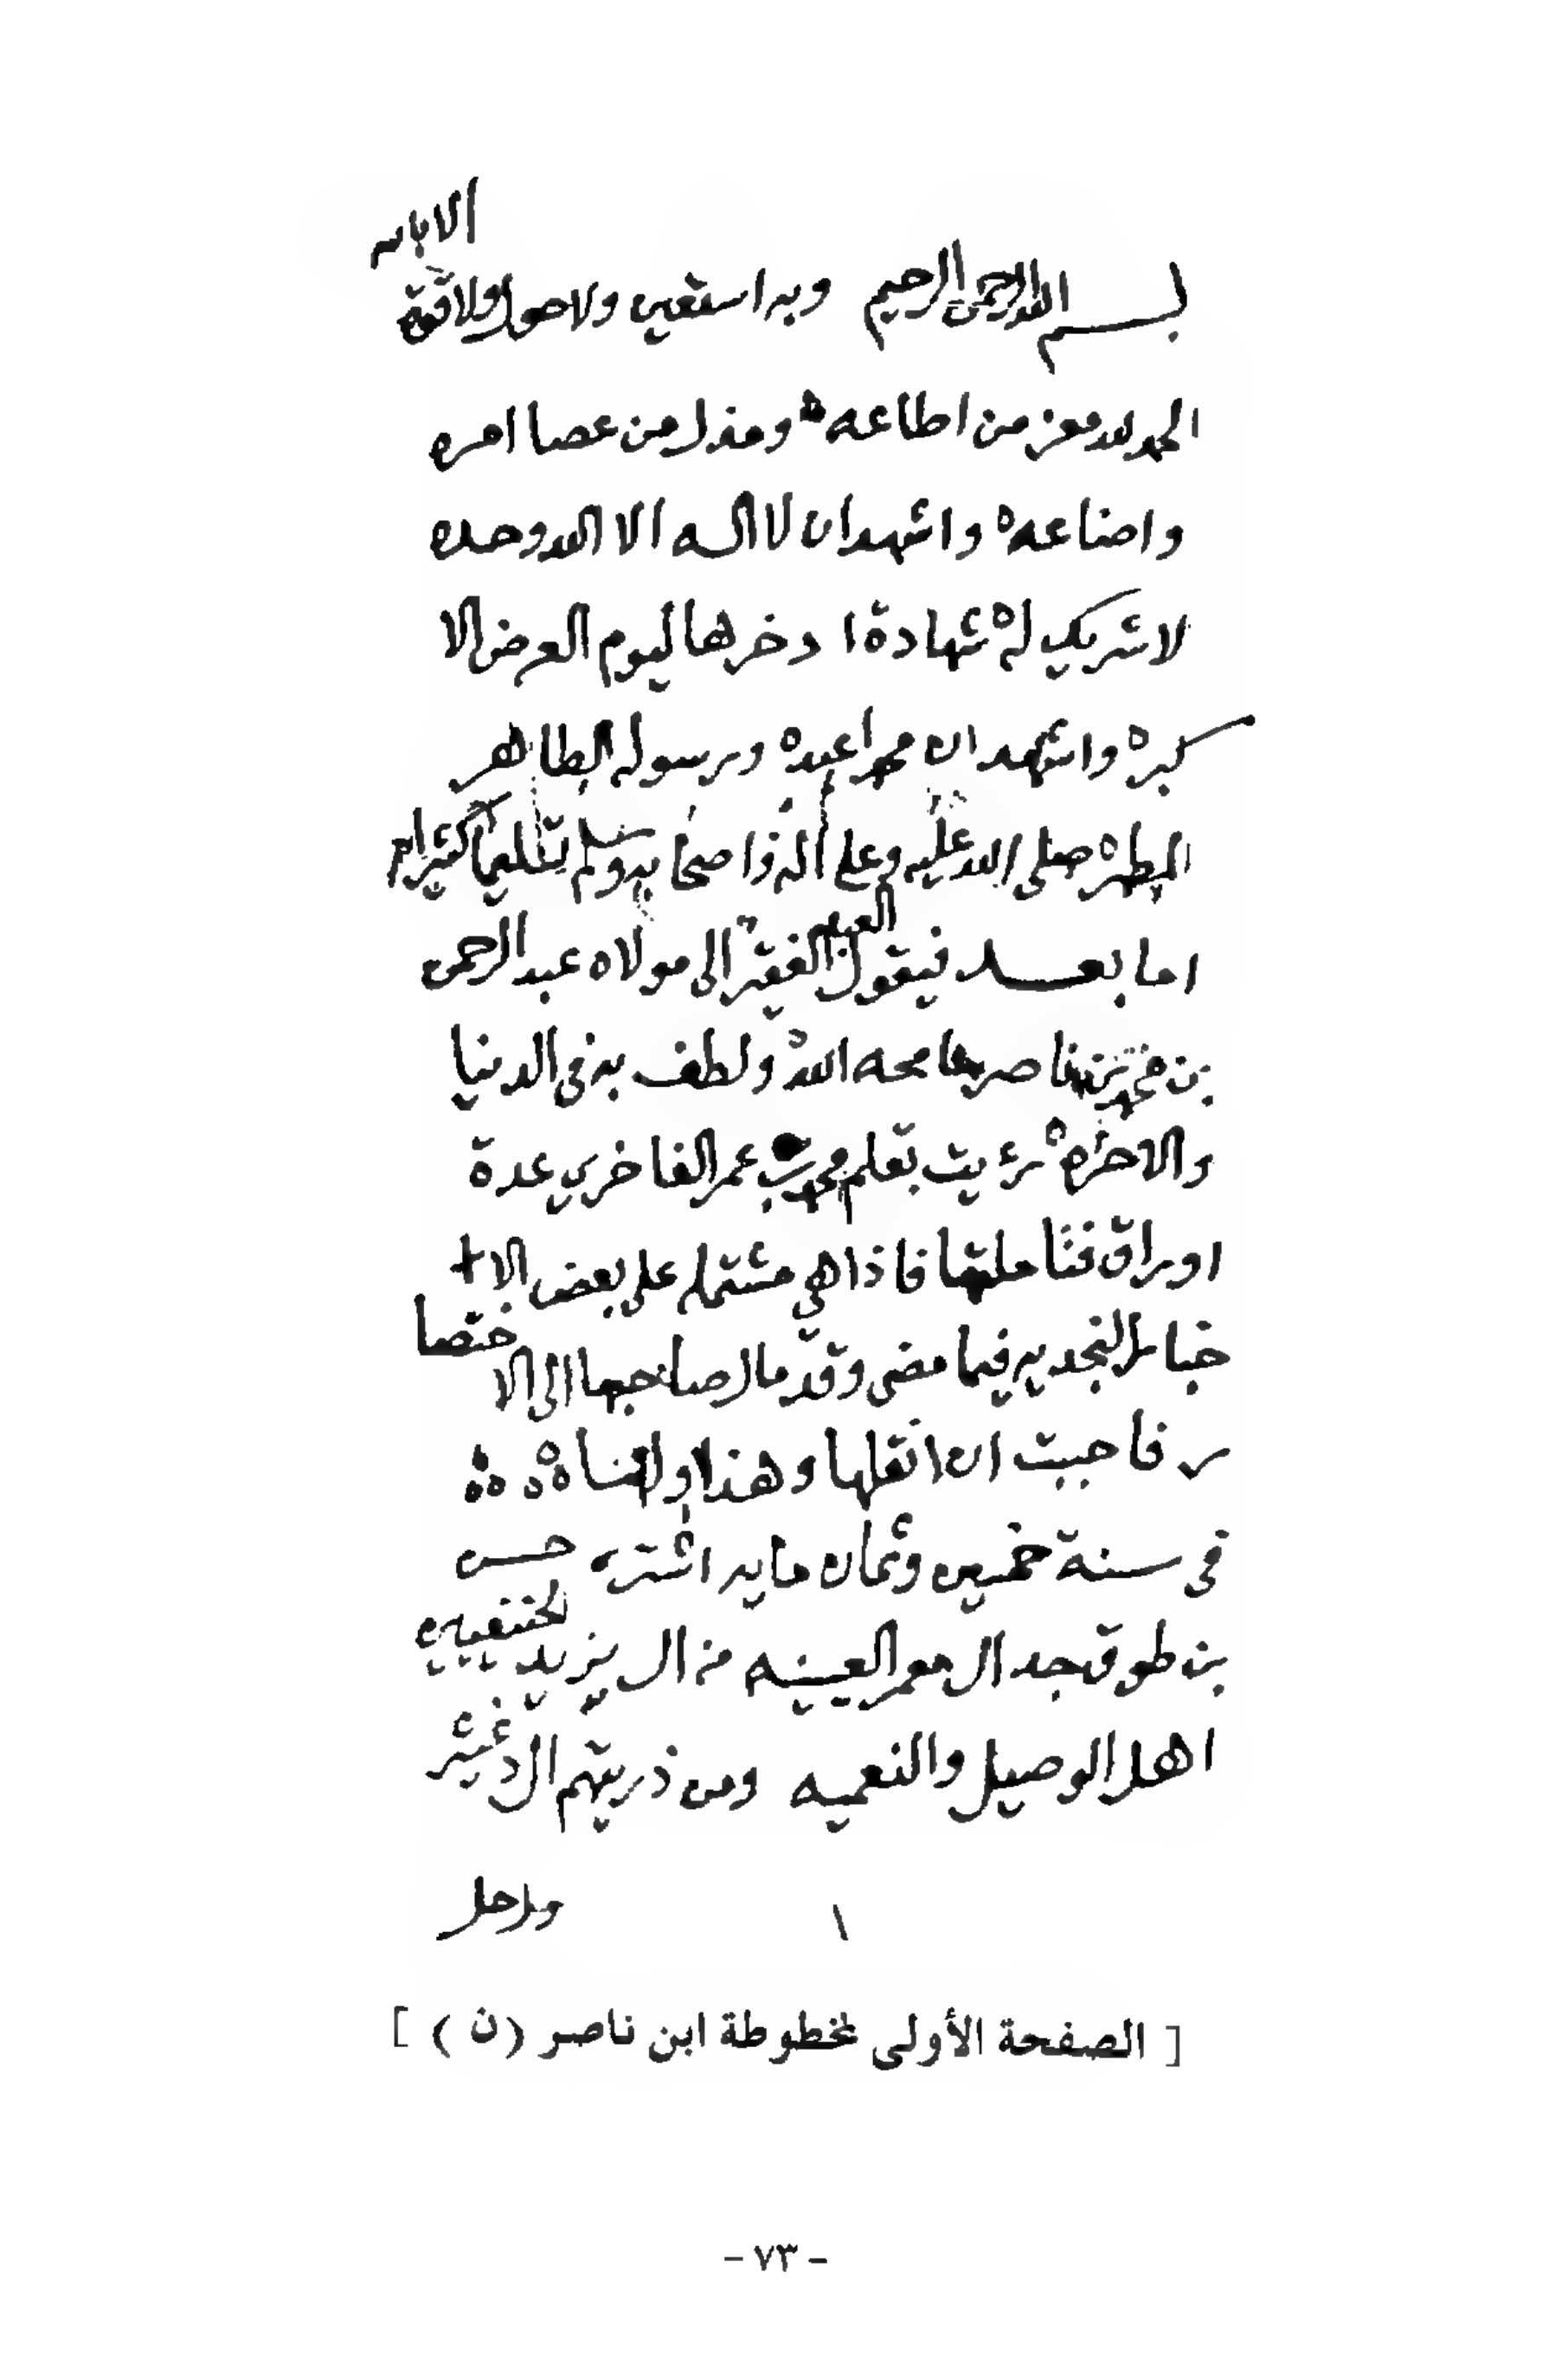 بسم الله الرحمن الرحيم وبه استعين ولا حول ولا قوة الا بالله
الحمد لله معز من اطاعه ومذل من عصا امره
واضاعه واشهد ان لا اله الا الله وحده
لا شريك له شهادة ادخرها ليوم العرض الا
كبره واشهد ان محمدا عبده ورسوله الطاهر
المطهر صلى الله عليه وعلى اله واصحابه وسلم تسليما كثيرا
اما بعد فيقول العبد الفقير الى مولاه عبد الرحمن
بن محمد بن ناصر سامحه الله ولطف به في الدنيا
والاخره رئيت بقلم محمد بن عمر الفاخري عدة
اوراق فتاملتها فاذا هي مشتمله على بعض الا
خبار النجديه فيما مضى وقد مال صاحبها الى الاختصا
ر فاحببت ان انقلها وهذا اولها
في سنة خمسين وثمان مايه اشترى حسن
بن طوق جد ال معمر العيينه من ال يزيد الحنفيين
اهل الوصيل والنعميه ومن ذريتهم ال دغيثر
١
[ الصفحة الأولى لمخطوطة ابن ناصر (ن) ]
- ٧٣ -